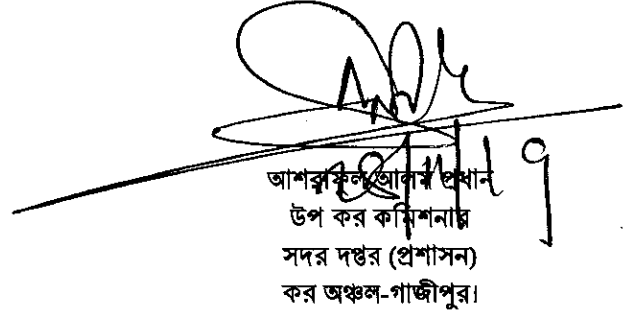 আশরাফুল আলম প্রধান
উপ কর কমিশনার
সদর দপ্তর (প্রশাসন)
কর অঞ্চল-গাজীপুর।